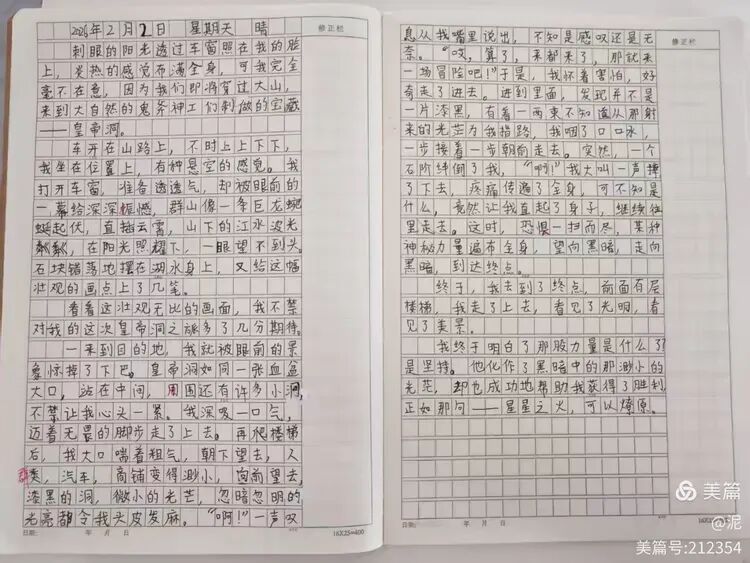 2026年2月2日 星期天 晴
修正栏
刺眼的阳光透过车窗照在我的脸
上，炎热的感觉布满全身，可我完全
毫不在意，因为我们即将穿过大山，
来到大自然的鬼斧神工们刺做的宝藏
——皇帝洞。
车开在山路上，不时上上下下，
我坐在位置上，有种悬空的感觉。我
打开车窗，准备透透气，却被眼前的
一幕给深深振憾，群山像一条巨龙蜿
蜒起伏，直插云霄，山下的江水波光
粼粼，在阳光照耀下，一眼望不到头。
石块错落地摆在湖水身上，又给这幅
壮观的画点上了几笔。
看着这壮观无比的画面，我不禁
对我的这次皇帝洞之旅多了几分期待。
一来到目的地，我就被眼前的景
象惊掉了下巴。皇帝洞如同一张血盆
大口。站在中间，周围还有许多小洞，
不禁让我心头一紧。我深吸一口气，
迈着无畏的脚步走了上去。再爬楼梯
后，我大口喘着粗气，朝下望去，人
类，汽车，商铺变得渺小，向前望去，
漆黑的洞，微小的光芒，忽暗忽明的
光亮都令我头皮发麻。“啊！”一声叹
日期： 年 月 日
16X25=400
修正栏
息从我嘴里说出，不知是感叹还是无
奈。“哎，算了，来都来了，那就来
一场冒险吧！”于是，我怀着害怕，好
奇走了进去。进到里面，发现并不是
一片漆黑，有着一束不知道从那射
来的光芒为我指路，我咽了口口水，
一步接着一步朝前走去。突然，一个
石阶绊倒了我，“啊！”我大叫一声摔
了下去，疼痛传遍了全身，可不知是
什么，竟然让我直起了身子，继续往
里走去。这时，恐惧一扫而尽，某种
神秘力量遍布全身，望向黑暗，走向
黑暗，到达终点。
终于，我走到了终点，前面有层
楼梯，我走了上去，看见了光明，看
见了美景。
我终于明白了那股力量是什么了？
是坚持。他化作了黑暗中的那渺小的
光芒，却也成功地帮助我获得了胜利
正如那句——星星之火，可以燎原。
日期： 年 月 日
美篇
@泥
美篇号:212354